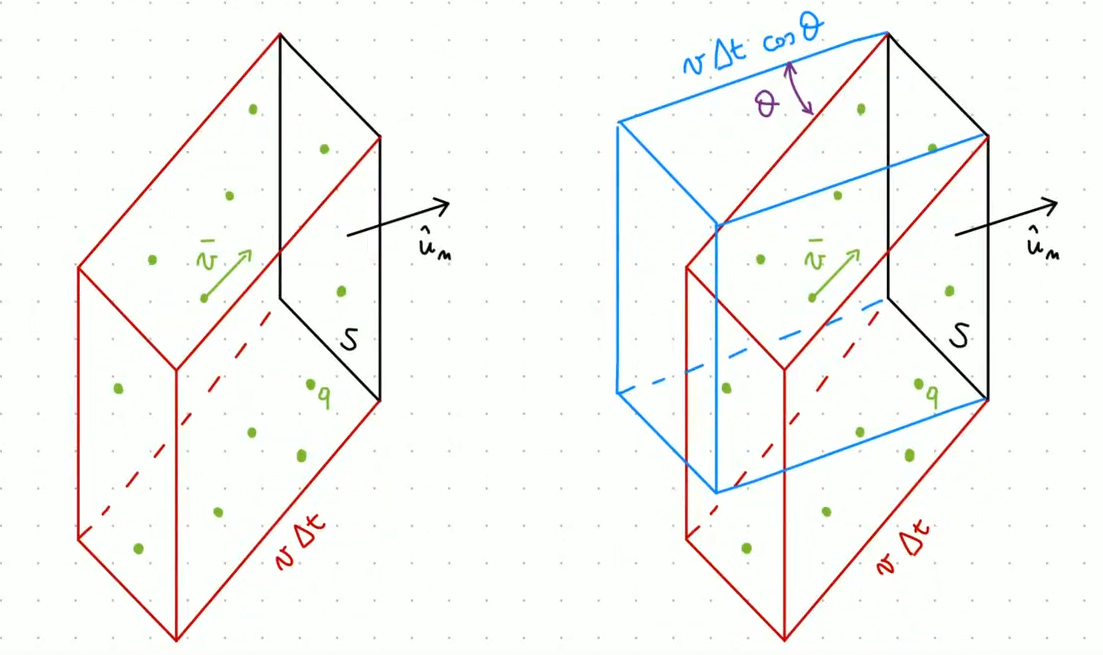 v̄
û_n
S
q
v Δt
v Δt cos θ
θ
v̄
û_n
S
q
v Δt